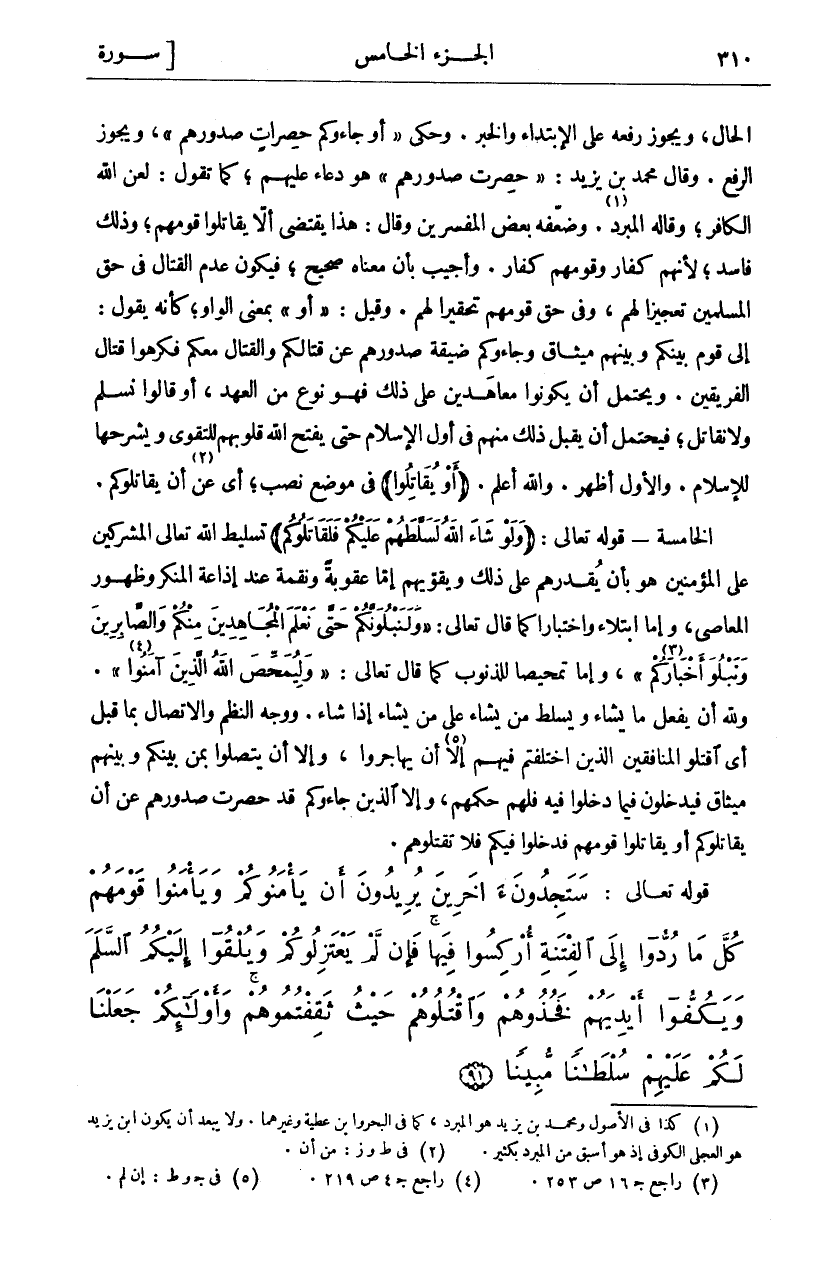 ٣١٠ الجـزء الخامس [ ســورة
الحال، ويجوز رفعه على الإبتداء والخبر . وحكى « أو جاءوكم حصِراتٍ صدورهم »، ويجوز
الرفع . وقال محمد بن يزيد : « حصِرت صدورهم » هو دعاء عليهم ؛ كما تقول : لعن الله
الكافر ؛ وقاله المبرد (١) . وضعّفه بعض المفسرين وقال : هذا يقتضى ألّا يقاتلوا قومهم؛ وذلك
فاسد ؛ لأنهم كفار وقومهم كفار . وأجيب بأن معناه صحيح ؛ فيكون عدم القتال فى حق
المسلمين تعجيزا لهم ، وفى حق قومهم تحقيرا لهم . وقيل : « أو » بمعنى الواو؛ كأنه يقول :
إلى قوم بينكم وبينهم ميثاق وجاءوكم ضيقة صدورهم عن قتالكم والقتال معكم فكرهوا قتال
الفريقين . ويحتمل أن يكونوا معاهَدين على ذلك فهو نوع من العهد ، أو قالوا نسلم
ولا نقاتل ؛ فيحتمل أن يقبل ذلك منهم فى أول الإسلام حتى يفتح الله قلوبهم للتقوى ويشرحها
للإسلام . والأول أظهر . والله أعلم . ﴿أَوْ يُقَاتِلُوا﴾ فى موضع نصب؛ أى عن (٢) أن يقاتلوكم .
الخامسة — قوله تعالى : ﴿وَلَوْ شَاءَ اللهُ لَسَلَّطَهُمْ عَلَيْكُمْ فَلَقَاتَلُوكُمْ﴾ تسليط الله تعالى المشركين
على المؤمنين هو بأن يُقدرهم على ذلك ويقوّيهم إمّا عقوبةً ونقمة عند إذاعة المنكر وظهور
المعاصى، وإما ابتلاء واختبارا كما قال تعالى: «وَلَنَبْلُوَنَّكُمْ حَتَّى نَعْلَمَ الْمُجَاهِدِينَ مِنْكُمْ وَالصَّابِرِينَ
وَنَبْلُوَ أَخْبَارَكُمْ (٣) » ، وإما تمحيصا للذنوب كما قال تعالى : « وَلِيُمَحِّصَ اللهُ الَّذِينَ آمَنُوا (٤) » .
ولله أن يفعل ما يشاء ويسلط من يشاء على من يشاء إذا شاء . ووجه النظم والاتصال بما قبل
أى ٱقتلو المنافقين الذين اختلفتم فيهم إلّا (٥) أن يهاجروا ، وإلا أن يتصلوا بمن بينكم وبينهم
ميثاق فيدخلون فيما دخلوا فيه فلهم حكمهم، وإلا ٱلذين جاءوكم قد حصرت صدورهم عن أن
يقاتلوكم أو يقاتلوا قومهم فدخلوا فيكم فلا تقتلوهم .
قوله تعالى : سَتَجِدُونَ ءَاخَرِينَ يُرِيدُونَ أَن يَأْمَنُوكُمْ وَيَأْمَنُوا قَوْمَهُمْ
كُلَّ مَا رُدُّوٓا إِلَى ٱلْفِتْنَةِ أُرْكِسُوا فِيهَا ۚ فَإِن لَّمْ يَعْتَزِلُوكُمْ وَيُلْقُوٓا إِلَيْكُمُ ٱلسَّلَمَ
وَيَكُفُّوٓا أَيْدِيَهُمْ فَخُذُوهُمْ وَٱقْتُلُوهُمْ حَيْثُ ثَقِفْتُمُوهُمْ ۚ وَأُوْلَـٰٓئِكُمْ جَعَلْنَا
لَكُمْ عَلَيْهِمْ سُلْطَـٰنًا مُّبِينًا ﴿٩١﴾
(١) كذا فى الأصول ومحمد بن يزيد هو المبرد ، كما فى البحر وابن عطية وغيرهما . ولا يبعد أن يكون ابن يزيد
هو العجلى الكوفى إذ هو أسبق من المبرد بكثير . (٢) فى ط و ز : من أن .
(٣) راجع جـ ١٦ ص ٢٥٣ . (٤) راجع جـ ٤ ص ٢١٩ . (٥) فى جـ و ط : إن لم .